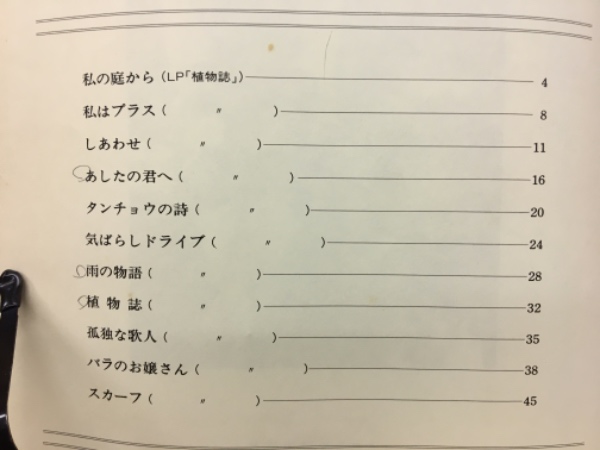 私の庭から(LP「植物誌」) 4
私はプラス( 〃 ) 8
しあわせ( 〃 ) 11
あしたの君へ( 〃 ) 16
タンチョウの詩( 〃 ) 20
気ばらしドライブ( 〃 ) 24
雨の物語( 〃 ) 28
植物誌( 〃 ) 32
孤独な歌人( 〃 ) 35
バラのお嬢さん( 〃 ) 38
スカーフ( 〃 ) 45